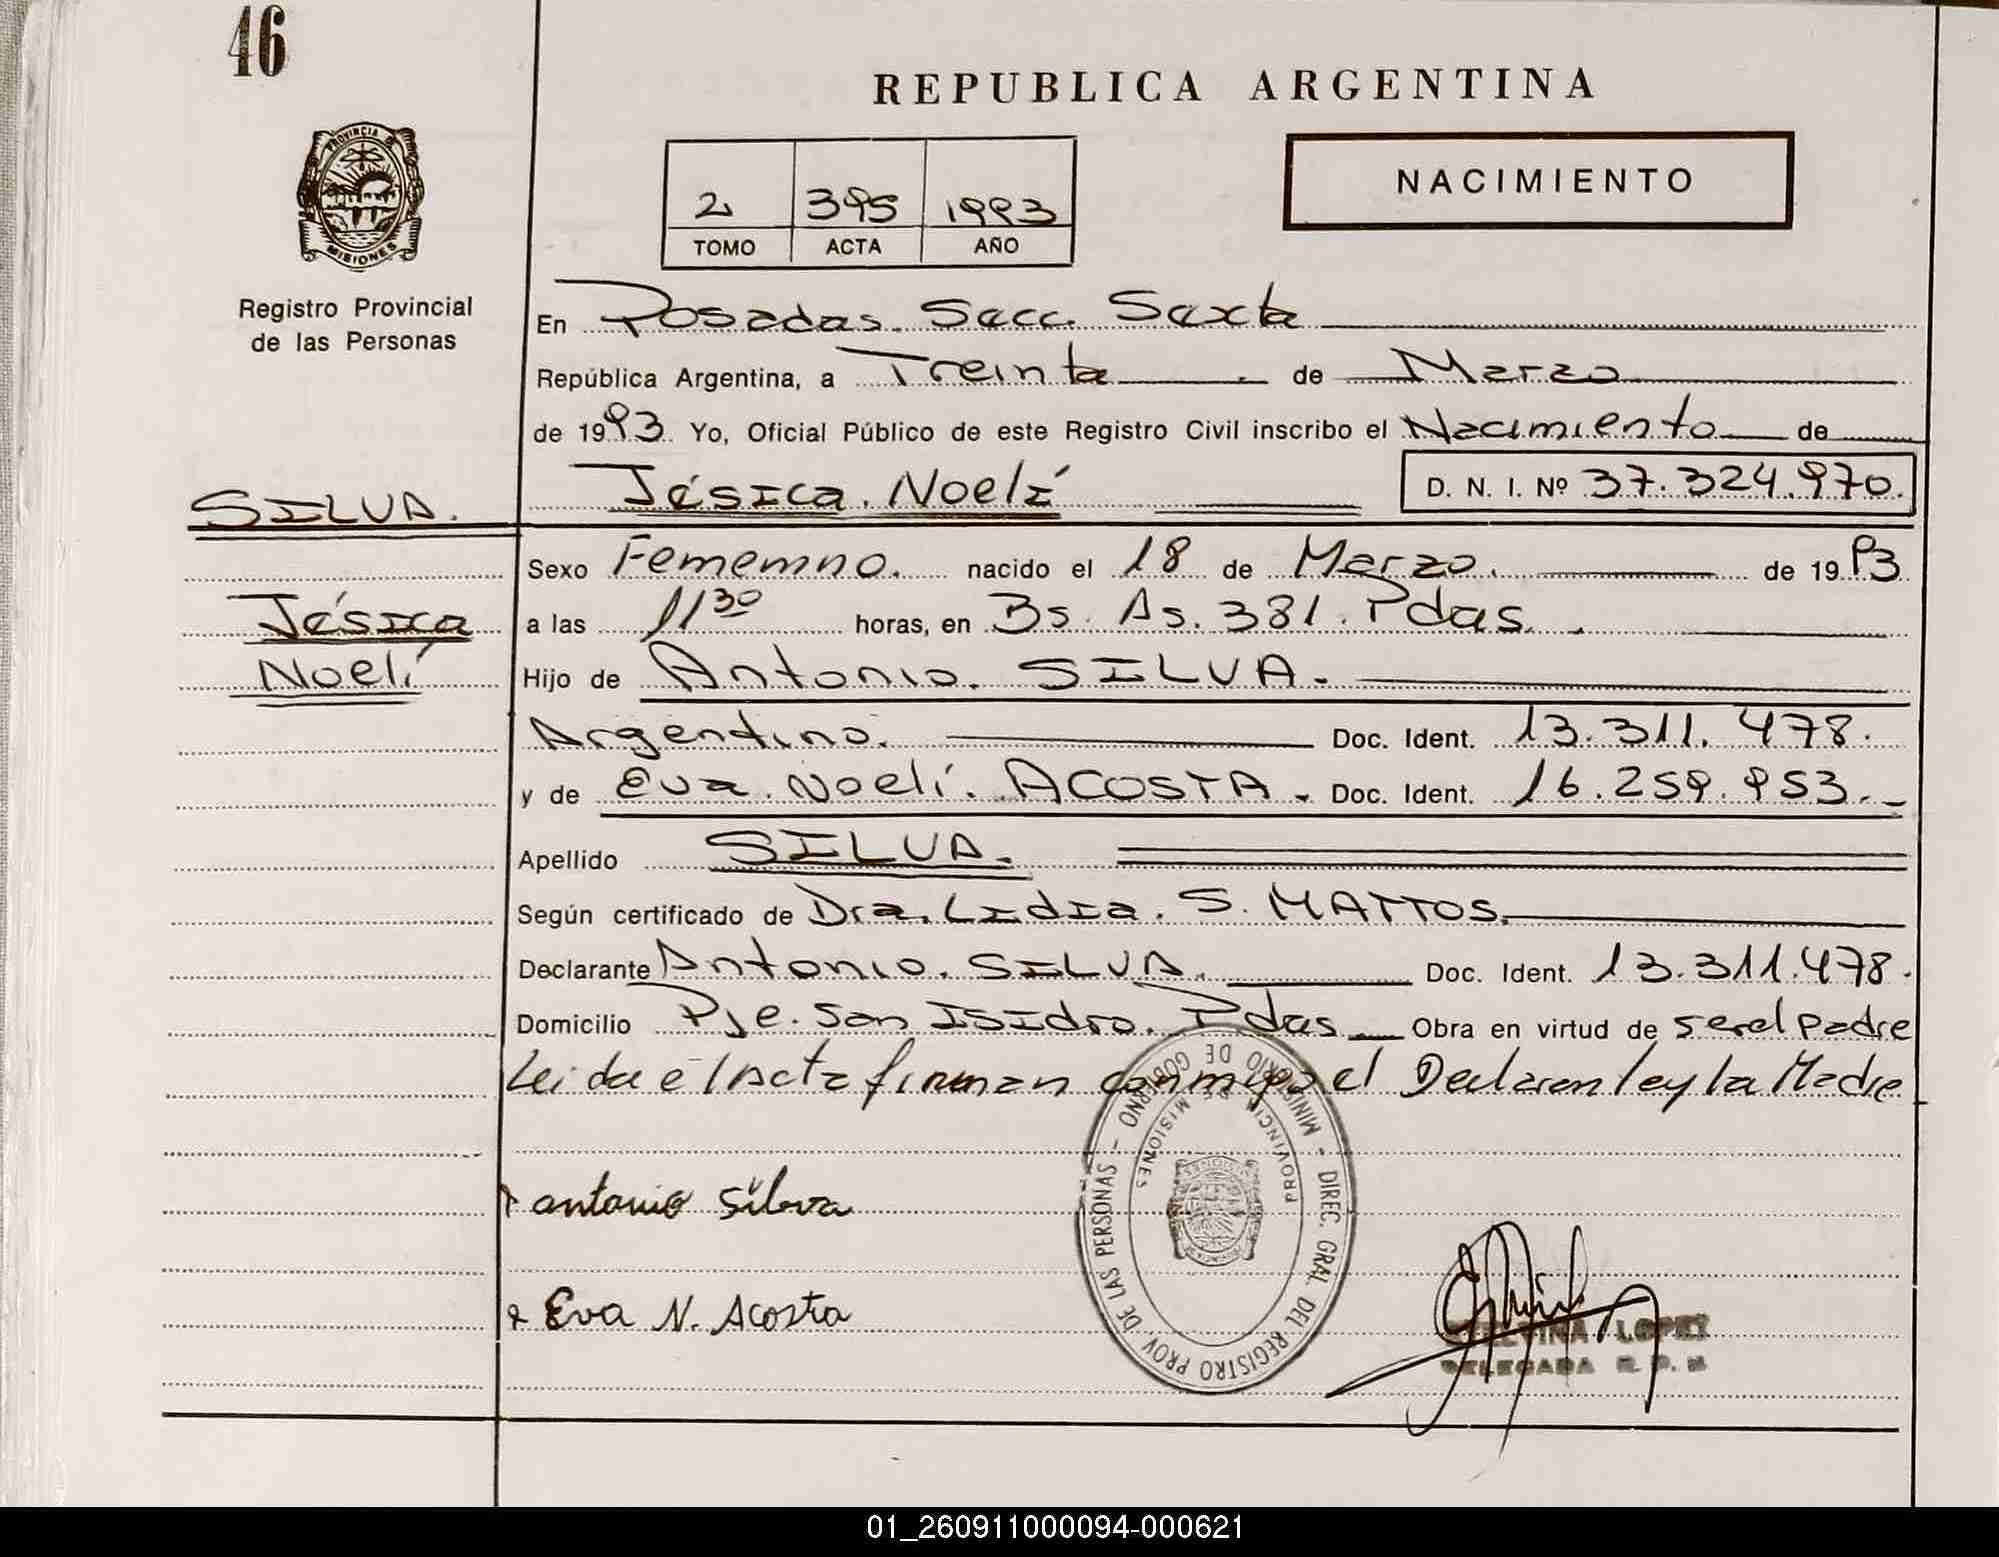 46
REPUBLICA ARGENTINA
PROVINCIA DE
MISIONES
2 395 1993
TOMO ACTA AÑO
NACIMIENTO
Registro Provincial
de las Personas
En Posadas. Secc. Sexta
República Argentina, a Treinta de Marzo
de 1993. Yo, Oficial Público de este Registro Civil inscribo el Nacimiento de
SILVA.
Jésica. Noelí D. N. I. Nº 37.324.970.
Sexo Femenino. nacido el 18 de Marzo. de 1993
Jésica
a las 11 30 horas, en Bs. As. 381. Pdas.
Noelí
Hijo de Antonio. SILVA.
Argentino. Doc. Ident. 13.311.478.
y de Eva. Noelí. ACOSTA. Doc. Ident. 16.259.953.
Apellido SILVA.
Según certificado de Dra. Lidia. S. MATTOS.
Declarante Antonio. SILVA. Doc. Ident. 13.311.478.
Domicilio Pje. San Isidro. Pdas. Obra en virtud de ser el padre
Leida el Acta firman conmigo el Declarante y la Madre
MINISTERIO DE GOBIERNO - DIREC. GRAL. DEL REGISTRO PROV. DE LAS PERSONAS -
PROVINCIA DE MISIONES
antonio Silva
Eva N. Acosta
LOPEZ
DELEGADA R. P. M
01_260911000094-000621